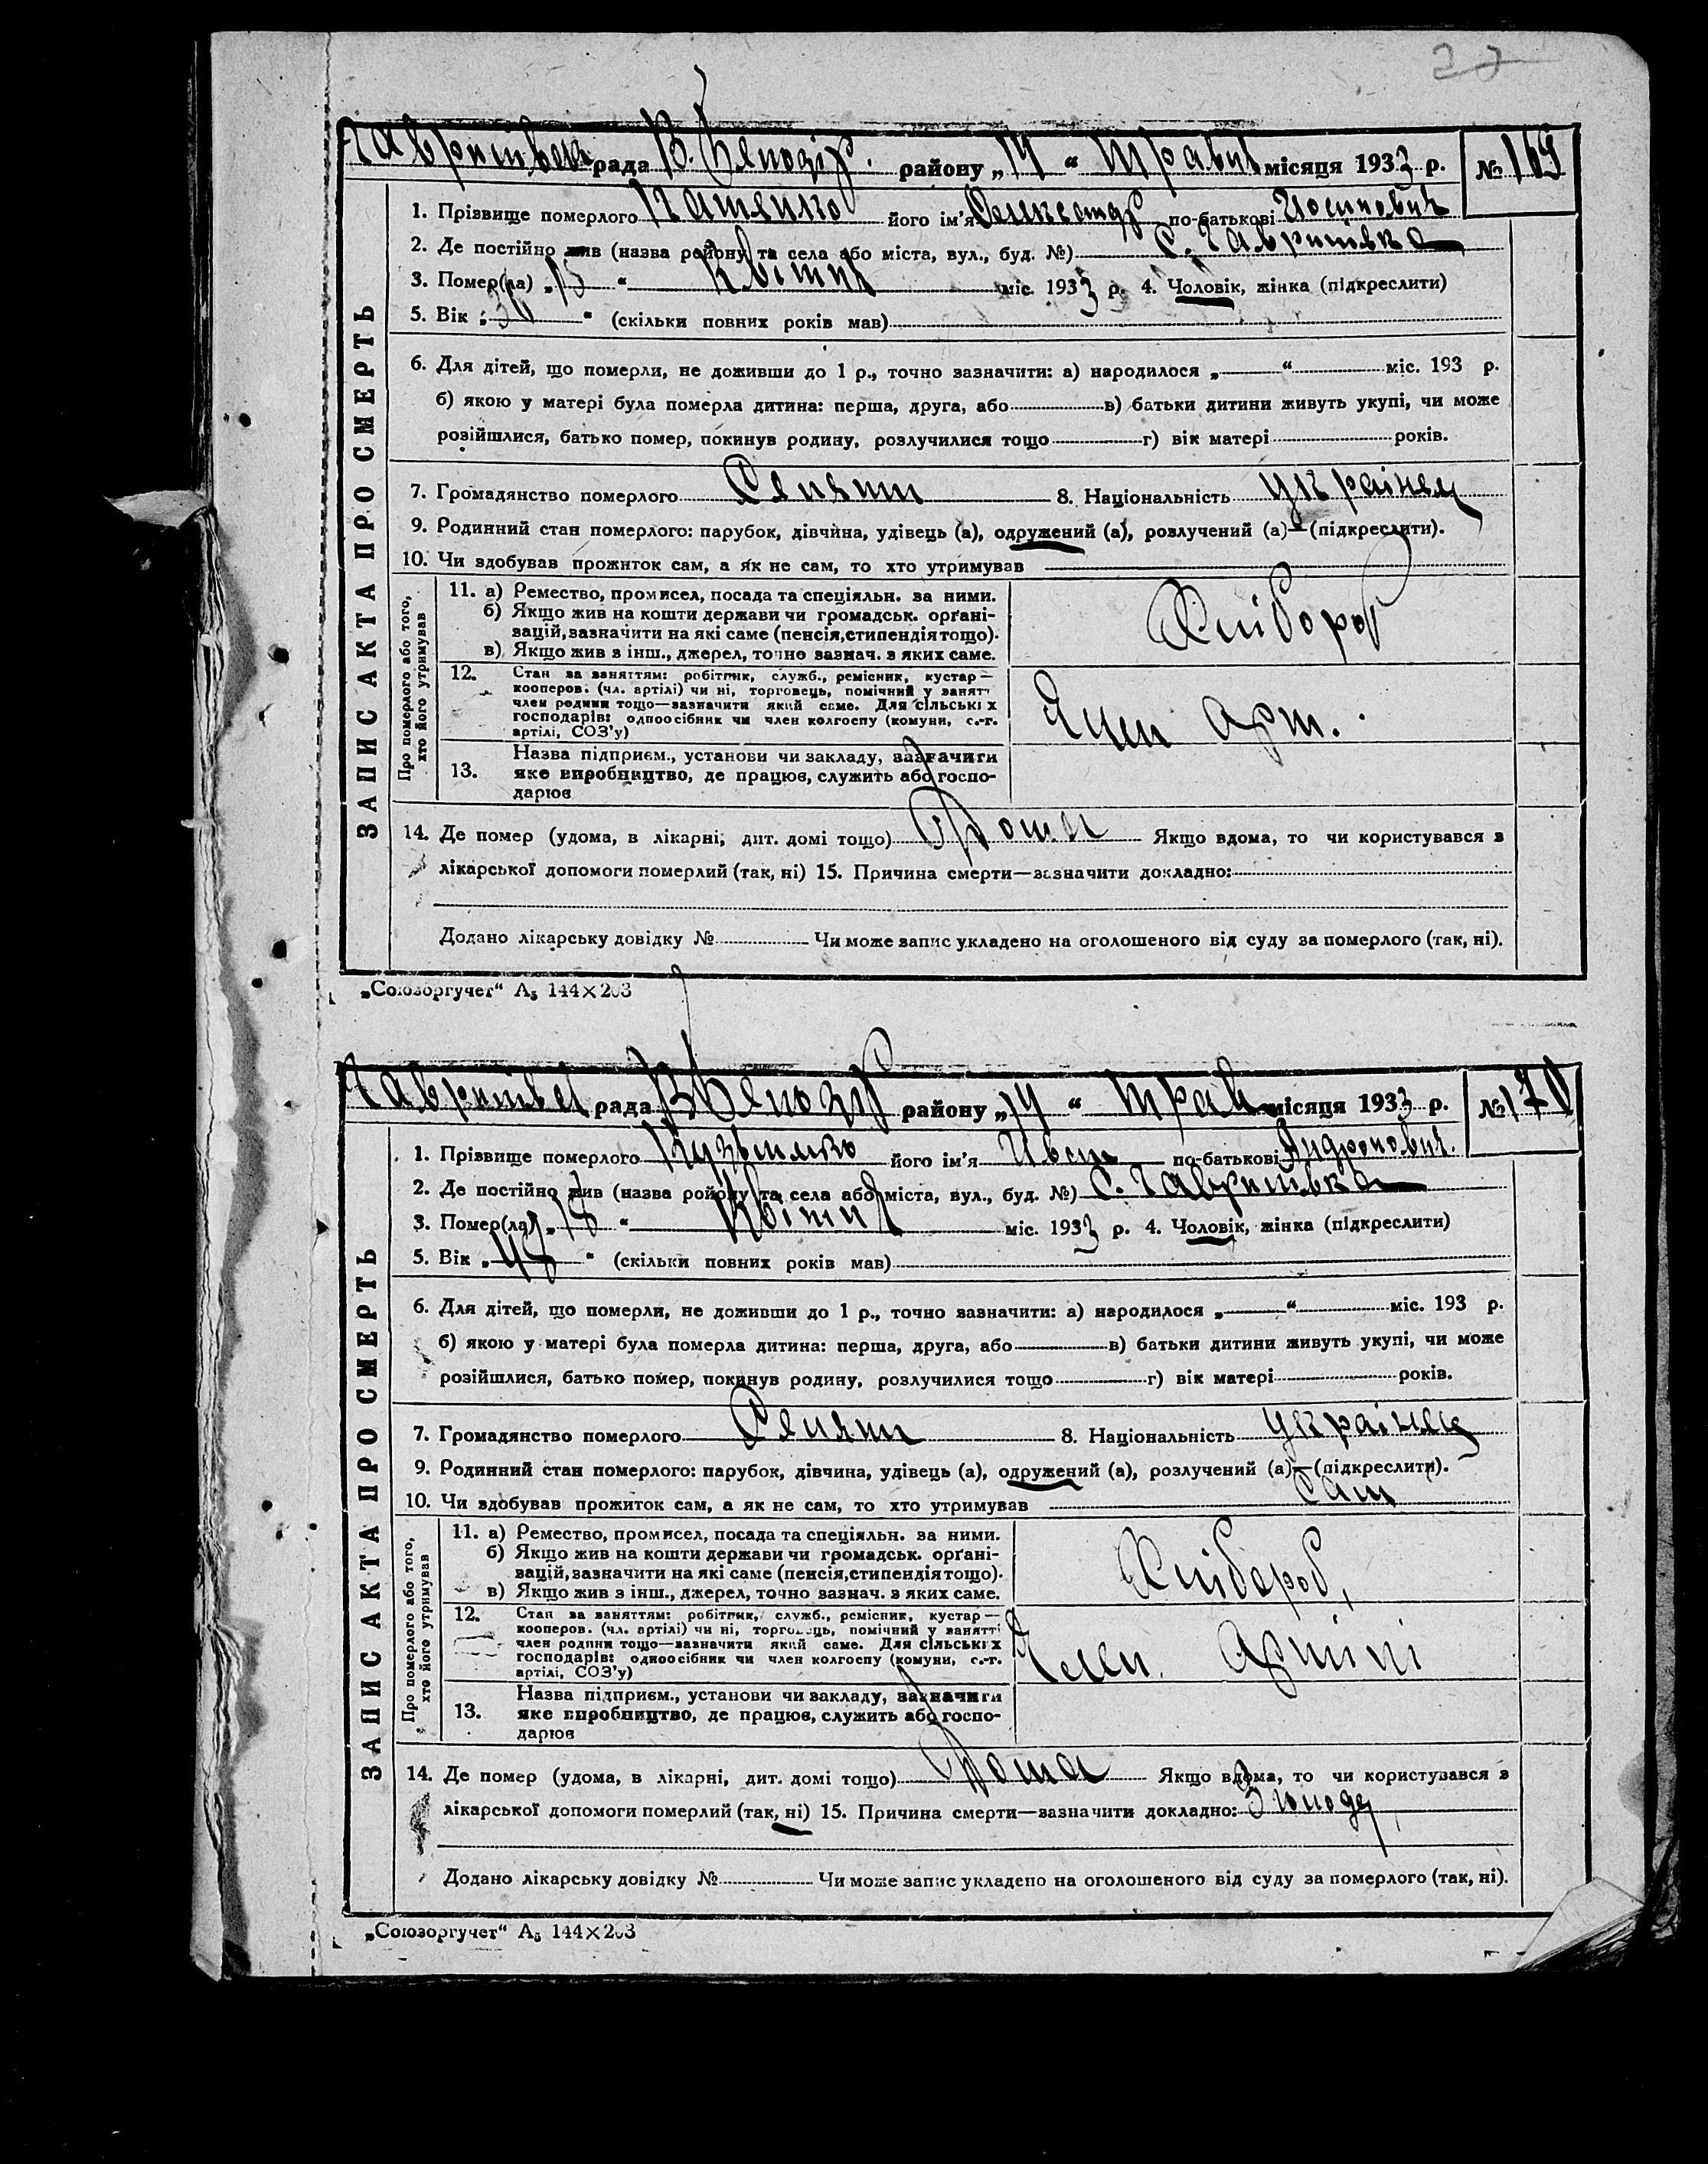 Гавритівська рада В. Деповір. району „14“ травня місяця 1933 р. № 169
1. Прізвище померлого його ім'я Олександр по-батькові Йосипович
2. Де постійно жив (назва району та села або міста, вул., буд. №) С. Гавритівка
3. Помер(ла) „15“ Квітня міс. 1933 р. 4. Чоловік, жінка (підкреслити)
5. Вік „ “ (скільки повних років мав)
6. Для дітей, що померли, не доживши до 1 р., точно зазначити: а) народилося „ “ міс. 193 р.
б) якою у матері була померла дитина: перша, друга, або в) батьки дитини живуть укупі, чи може
розійшлися, батько помер, покинув родину, розлучилися тощо г) вік матері років.
7. Громадянство померлого Селянин 8. Національність українец
9. Родинний стан померлого: парубок, дівчина, удівець (а), одружений (а), розлучений (а)—(підкреслити).
10. Чи здобував прожиток сам, а як не сам, то хто утримував
ЗАПИС АКТА ПРО СМЕРТЬ
Про померлого або того, хто його утримував
11. а) Ремество, промисел, посада та спеціяльн. за ними.
б) Якщо жив на кошти держави чи громадськ. орґані-
зацій, зазначити на які саме (пенсія, стипендія тощо).
в) Якщо жив з інш., джерел, точно зазнач. з яких саме.
Хлібороб
12. Стан за заняттям: робітник, служб., ремісник, кустар—
кооперов. (чл. артілі) чи ні, торговець, помічний у занятт
член родини тощо—зазначити який саме. Для сільських
господарів: одноосібник чи член колгоспу (комуни, с.-г.
артілі, СОЗ'у)
Член Арт.
13. Назва підприєм., установи чи закладу, зазначити
яке виробництво, де працює, служить або госпо-
дарює
14. Де помер (удома, в лікарні, дит. домі тощо) Дома Якщо вдома, то чи користувався з
лікарської допомоги померлий (так, ні) 15. Причина смерти—зазначити докладно:
Додано лікарську довідку № Чи може запис укладено на оголошеного від суду за померлого (так, ні).
„Союзоргучет“ А5 144×203
рада району „14“ трав місяця 1933 р. № 170
1. Прізвище померлого Кузьменко його ім'я Иван по-батькові Андронович.
2. Де постійно жив (назва району та села або міста, вул., буд. №) С. Гавритівка
3. Помер(ла) „18“ Квітня міс. 1933 р. 4. Чоловік, жінка (підкреслити)
5. Вік „48“ (скільки повних років мав)
6. Для дітей, що померли, не доживши до 1 р., точно зазначити: а) народилося „ “ міс. 193 р.
б) якою у матері була померла дитина: перша, друга, або в) батьки дитини живуть укупі, чи може
розійшлися, батько помер, покинув родину, розлучилися тощо г) вік матері років.
7. Громадянство померлого Селянин 8. Національність українец
9. Родинний стан померлого: парубок, дівчина, удівець (а), одружений (а), розлучений (а)—(підкреслити).
10. Чи здобував прожиток сам, а як не сам, то хто утримував Сам
ЗАПИС АКТА ПРО СМЕРТЬ
Про померлого або того, хто його утримував
11. а) Ремество, промисел, посада та спеціяльн. за ними.
б) Якщо жив на кошти держави чи громадськ. орґані-
зацій, зазначити на які саме (пенсія, стипендія тощо).
в) Якщо жив з інш., джерел, точно зазнач. з яких саме.
Хлібороб,
12. Стан за заняттям: робітник, служб., ремісник, кустар—
кооперов. (чл. артілі) чи ні, торговець, помічний у занятті
член родини тощо—зазначити який саме. Для сільських
господарів: одноосібник чи член колгоспу (комуни, с.-г.
артілі, СОЗ'у)
Член Артілі
13. Назва підприєм., установи чи закладу, зазначити
яке виробництво, де працює, служить або госпо-
дарює
14. Де помер (удома, в лікарні, дит. домі тощо) Дома Якщо вдома, то чи користувався з
лікарської допомоги померлий (так, ні) 15. Причина смерти—зазначити докладно: З голоду
Додано лікарську довідку № Чи може запис укладено на оголошеного від суду за померлого (так, ні).
„Союзоргучет“ А5 144×203